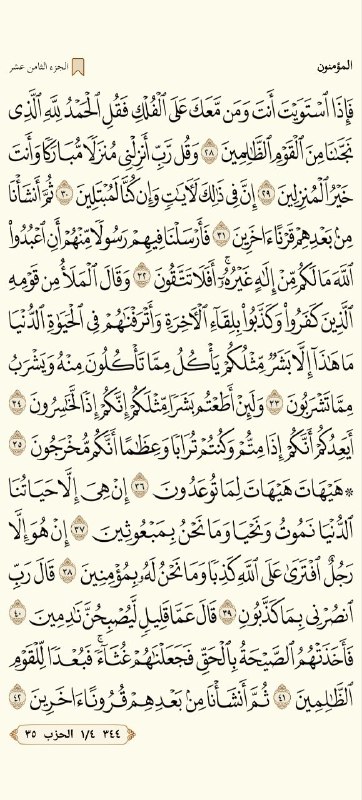 المؤمنون
الجزء الثامن عشر
فَإِذَا ٱسْتَوَيْتَ أَنتَ وَمَن مَّعَكَ عَلَى ٱلْفُلْكِ فَقُلِ ٱلْحَمْدُ لِلَّهِ ٱلَّذِى
نَجَّىٰنَا مِنَ ٱلْقَوْمِ ٱلظَّـٰلِمِينَ ٢٨ وَقُل رَّبِّ أَنزِلْنِى مُنزَلًا مُّبَارَكًا وَأَنتَ
خَيْرُ ٱلْمُنزِلِينَ ٢٩ إِنَّ فِى ذَٰلِكَ لَـَٔايَـٰتٍ وَإِن كُنَّا لَمُبْتَلِينَ ٣٠ ثُمَّ أَنشَأْنَا
مِنۢ بَعْدِهِمْ قَرْنًا ءَاخَرِينَ ٣١ فَأَرْسَلْنَا فِيهِمْ رَسُولًا مِّنْهُمْ أَنِ ٱعْبُدُوا۟
ٱللَّهَ مَا لَكُم مِّنْ إِلَـٰهٍ غَيْرُهُۥٓ ۖ أَفَلَا تَتَّقُونَ ٣٢ وَقَالَ ٱلْمَلَأُ مِن قَوْمِهِ
ٱلَّذِينَ كَفَرُوا۟ وَكَذَّبُوا۟ بِلِقَآءِ ٱلْـَٔاخِرَةِ وَأَتْرَفْنَـٰهُمْ فِى ٱلْحَيَوٰةِ ٱلدُّنْيَا
مَا هَـٰذَآ إِلَّا بَشَرٌ مِّثْلُكُمْ يَأْكُلُ مِمَّا تَأْكُلُونَ مِنْهُ وَيَشْرَبُ
مِمَّا تَشْرَبُونَ ٣٣ وَلَئِنْ أَطَعْتُم بَشَرًا مِّثْلَكُمْ إِنَّكُمْ إِذًا لَّخَـٰسِرُونَ ٣٤
أَيَعِدُكُمْ أَنَّكُمْ إِذَا مِتُّمْ وَكُنتُمْ تُرَابًا وَعِظَـٰمًا أَنَّكُم مُّخْرَجُونَ ٣٥
۞ هَيْهَاتَ هَيْهَاتَ لِمَا تُوعَدُونَ ٣٦ إِنْ هِىَ إِلَّا حَيَاتُنَا
ٱلدُّنْيَا نَمُوتُ وَنَحْيَا وَمَا نَحْنُ بِمَبْعُوثِينَ ٣٧ إِنْ هُوَ إِلَّا
رَجُلٌ ٱفْتَرَىٰ عَلَى ٱللَّهِ كَذِبًا وَمَا نَحْنُ لَهُۥ بِمُؤْمِنِينَ ٣٨ قَالَ رَبِّ
ٱنصُرْنِى بِمَا كَذَّبُونِ ٣٩ قَالَ عَمَّا قَلِيلٍ لَّيُصْبِحُنَّ نَـٰدِمِينَ ٤٠
فَأَخَذَتْهُمُ ٱلصَّيْحَةُ بِٱلْحَقِّ فَجَعَلْنَـٰهُمْ غُثَآءً ۚ فَبُعْدًا لِّلْقَوْمِ
ٱلظَّـٰلِمِينَ ٤١ ثُمَّ أَنشَأْنَا مِنۢ بَعْدِهِمْ قُرُونًا ءَاخَرِينَ ٤٢
٣٤٤ ١/٤ الحزب ٣٥